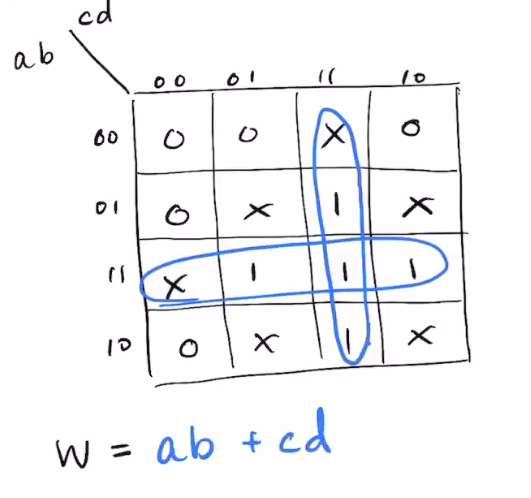 cd
ab
00 01 11 10
00 0 0 X 0
01 0 X 1 X
11 X 1 1 1
10 0 X 1 X
W = ab + cd